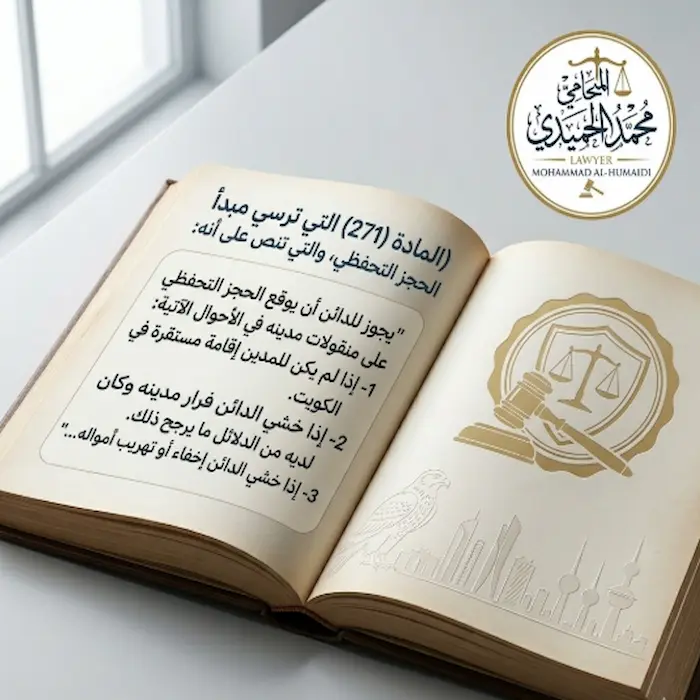 المحامي
محمد الحميدي
LAWYER
MOHAMMAD AL-HUMAIDI
(المادة (271) التي ترسي مبدأ
الحجز التحفظي، والتي تنص على أنه:
"يجوز للدائن أن يوقع الحجز التحفظي
على منقولات مدينه في الأحوال الآتية:
1- إذا لم يكن للمدين إقامة مستقرة في
الكويت.
2- إذا خشي الدائن فرار مدينه وكان
لديه من الدلائل ما يرجح ذلك.
3- إذا خشي الدائن إخفاء أو تهريب أمواله..."